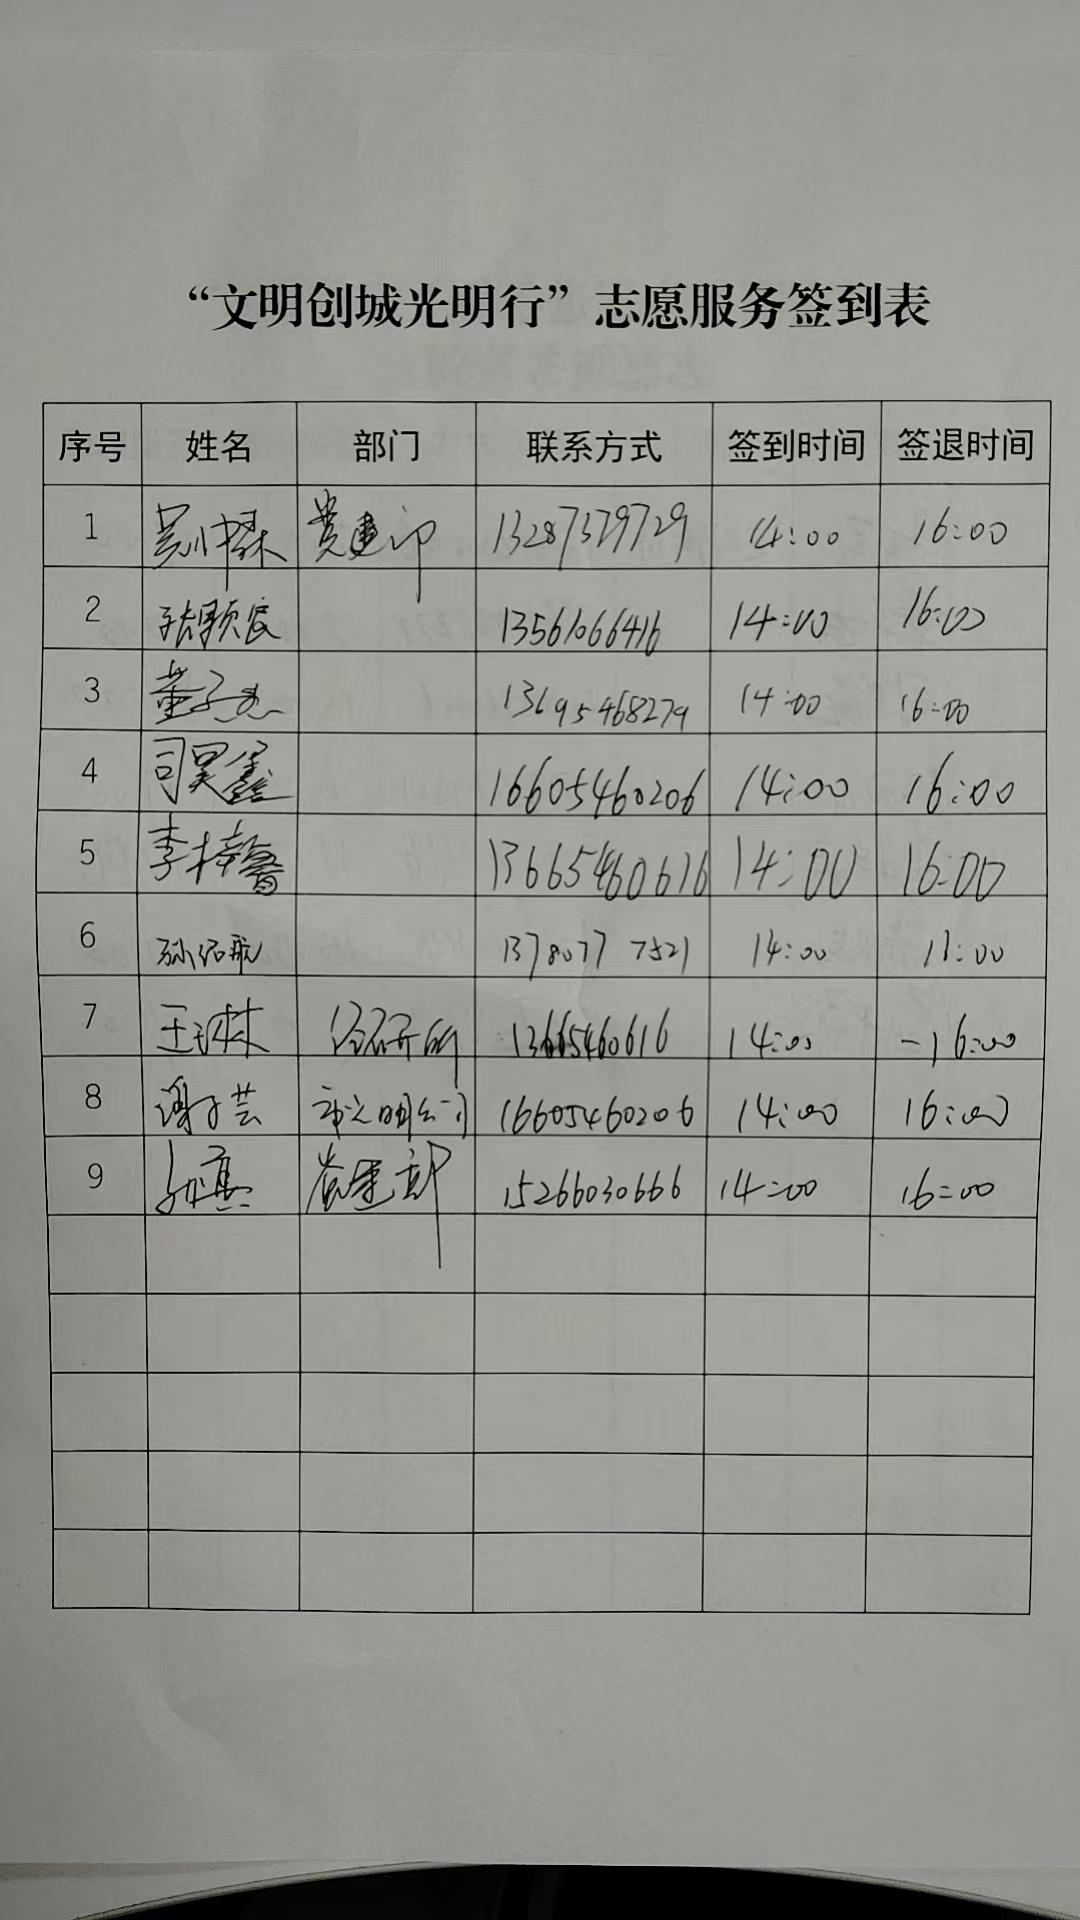 “文明创城光明行”志愿服务签到表
序号 姓名 部门 联系方式 签到时间 签退时间
1 13287379729 14:00 16:00
2 13561066416 14:00 16:00
3 董子 13695468279 14:00 16:00
4 司昊鑫 16605460206 14:00 16:00
5 李梓馨 13665460616 14:00 16:00
6 1378077 7521 14:00 :00
7 王 林 13665460616 14:00 -16:00
8 谢子芸 16605460206 14:00 16:00
9 党建部 15266030666 14:00 16:00